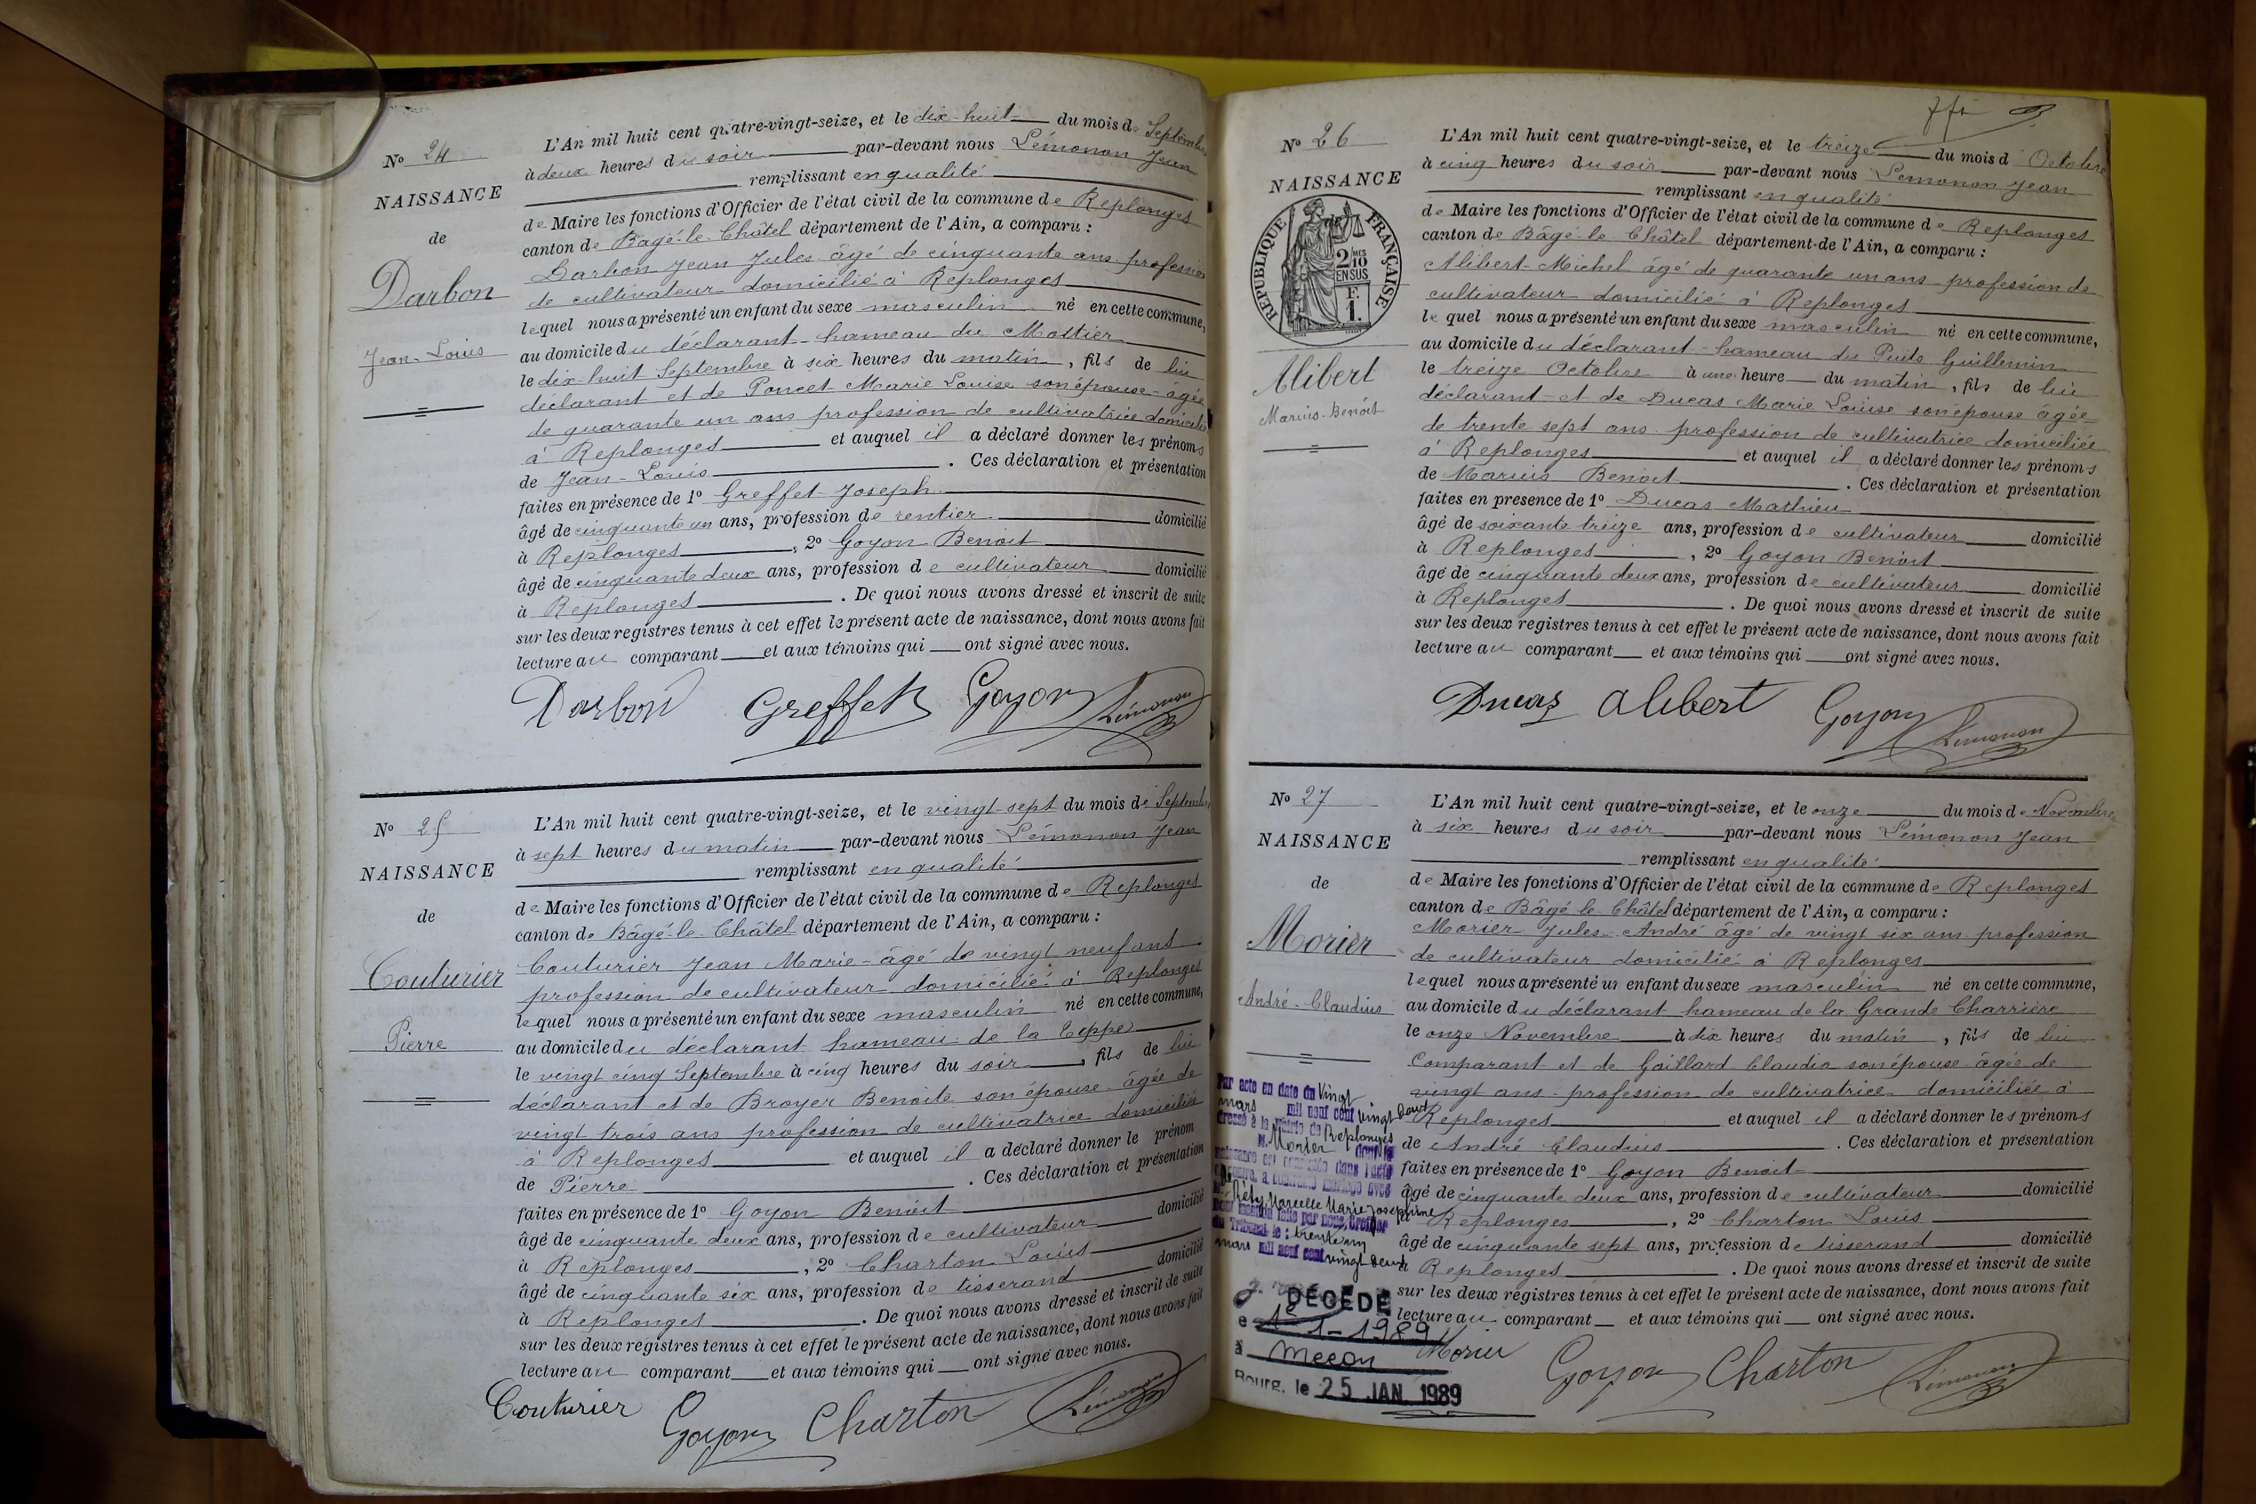 N° 24
NAISSANCE
de
Darbon
Jean-Louis
L'An mil huit cent quatre-vingt-seize, et le dix-huit du mois de Septembre
à deux heures du soir par-devant nous Lémonon Jean
remplissant en qualité
de Maire les fonctions d'Officier de l'état civil de la commune de Replonges
canton de Bâgé-le-Châtel département de l'Ain, a comparu :
Darbon Jean Jules âgé de cinquante ans profession
de cultivateur domicilié à Replonges
lequel nous a présenté un enfant du sexe masculin né en cette commune,
au domicile du déclarant hameau du Mottier
le dix-huit Septembre à six heures du matin, fils de lui
déclarant et de Poncet Marie Louise son épouse âgée
de quarante un ans profession de cultivatrice domiciliée
à Replonges et auquel il a déclaré donner les prénoms
de Jean-Louis . Ces déclaration et présentation
faites en présence de 1° Greffet Joseph
âgé de cinquante un ans, profession de rentier domicilié
à Replonges, 2° Goyon Benoit
âgé de cinquante deux ans, profession de cultivateur domicilié
à Replonges . De quoi nous avons dressé et inscrit de suite
sur les deux registres tenus à cet effet le présent acte de naissance, dont nous avons fait
lecture au comparant et aux témoins qui ont signé avec nous.
Darbon Greffet Goyon Lémonon
N° 25
NAISSANCE
de
Couturier
Pierre
L'An mil huit cent quatre-vingt-seize, et le vingt-sept du mois de Septembre
à sept heures du matin par-devant nous Lémonon Jean
remplissant en qualité
de Maire les fonctions d'Officier de l'état civil de la commune de Replonges
canton de Bâgé-le-Châtel département de l'Ain, a comparu :
Couturier Jean Marie âgé de vingt neuf ans
profession de cultivateur domicilié à Replonges
lequel nous a présenté un enfant du sexe masculin né en cette commune,
au domicile du déclarant hameau de la Teppe
le vingt cinq Septembre à cinq heures du soir, fils de lui
déclarant et de Broyer Benoite son épouse âgée de
vingt trois ans profession de cultivatrice domiciliée
à Replonges et auquel il a déclaré donner le prénom
de Pierre . Ces déclaration et présentation
faites en présence de 1° Goyon Benoit
âgé de cinquante deux ans, profession de cultivateur domicilié
à Replonges, 2° Charton Louis
âgé de cinquante six ans, profession de tisserand domicilié
à Replonges . De quoi nous avons dressé et inscrit de suite
sur les deux registres tenus à cet effet le présent acte de naissance, dont nous avons fait
lecture au comparant et aux témoins qui ont signé avec nous.
Couturier Goyon Charton Lémonon
N° 26
NAISSANCE
RÉPUBLIQUE FRANÇAISE
2 MES
10
EN SUS
F.
1.
Alibert
Marius-Benoit
L'An mil huit cent quatre-vingt-seize, et le treize du mois d'Octobre
à cinq heures du soir par-devant nous Lémonon Jean
remplissant en qualité
de Maire les fonctions d'Officier de l'état civil de la commune de Replonges
canton de Bâgé le Châtel département de l'Ain, a comparu :
Alibert Michel âgé de quarante un ans profession de
cultivateur domicilié à Replonges
lequel nous a présenté un enfant du sexe masculin né en cette commune,
au domicile du déclarant hameau du Puits Guillemin
le treize Octobre à une heure du matin, fils de lui
déclarant et de Ducas Marie Louise son épouse âgée
de trente sept ans profession de cultivatrice domiciliée
à Replonges et auquel il a déclaré donner les prénoms
de Marius Benoit . Ces déclaration et présentation
faites en présence de 1° Ducas Mathieu
âgé de soixante treize ans, profession de cultivateur domicilié
à Replonges, 2° Goyon Benoit
âgé de cinquante deux ans, profession de cultivateur domicilié
à Replonges . De quoi nous avons dressé et inscrit de suite
sur les deux registres tenus à cet effet le présent acte de naissance, dont nous avons fait
lecture au comparant et aux témoins qui ont signé avec nous.
Ducas Alibert Goyon Lémonon
N° 27
NAISSANCE
de
Morier
André-Claudius
Par acte en date du Vingt
mars mil neuf cent vingt deux
dressé à la mairie de Replonges
M. Morier dont la
naissance est constatée dans l'acte
ci-contre, a contracté mariage avec
Réty Marcelle Marie Joséphine
mention faite par nous, Greffier
du Tribunal le : trente un
mars mil neuf cent vingt deux
DÉCÉDÉ
le 1-1-1989
à Mâcon
Bourg, le 25 JAN. 1989
L'An mil huit cent quatre-vingt-seize, et le onze du mois de Novembre
à six heures du soir par-devant nous Lémonon Jean
remplissant en qualité
de Maire les fonctions d'Officier de l'état civil de la commune de Replonges
canton de Bâgé le Châtel département de l'Ain, a comparu :
Morier Jules André âgé de vingt six ans profession
de cultivateur domicilié à Replonges
lequel nous a présenté un enfant du sexe masculin né en cette commune,
au domicile du déclarant hameau de la Grande Charrière
le onze Novembre à dix heures du matin, fils de lui
comparant et de Gaillard Claudia son épouse âgée de
vingt ans profession de cultivatrice domiciliée à
Replonges et auquel il a déclaré donner les prénoms
de André Claudius . Ces déclaration et présentation
faites en présence de 1° Goyon Benoit
âgé de cinquante deux ans, profession de cultivateur domicilié
Replonges, 2° Charton Louis
âgé de cinquante sept ans, profession de tisserand domicilié
Replonges . De quoi nous avons dressé et inscrit de suite
sur les deux registres tenus à cet effet le présent acte de naissance, dont nous avons fait
lecture au comparant et aux témoins qui ont signé avec nous.
Morier Goyon Charton Lémonon